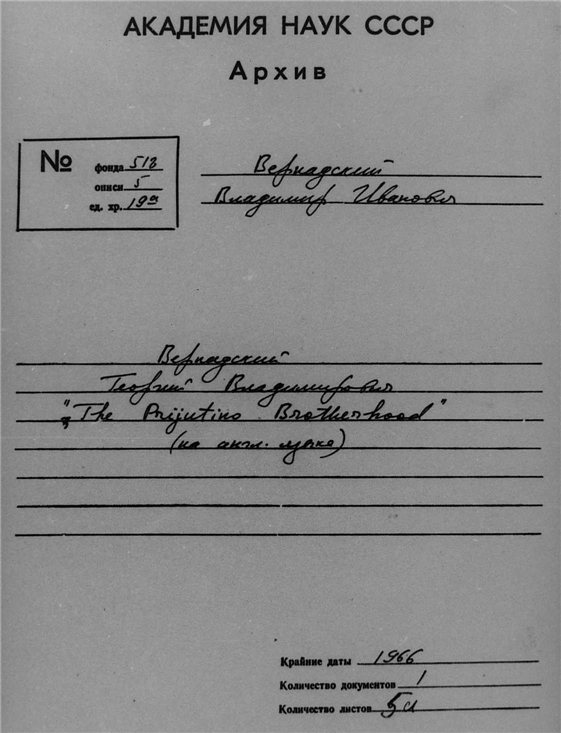 АКАДЕМИЯ НАУК СССР
Архив
№
фонда 518
описи 5
ед. хр. 19а
Вернадский
Владимир Иванович
Вернадский
Георгий Владимирович
"The Prijutino Brotherhood"
(на англ. языке)
Крайние даты 1966
Количество документов 1
Количество листов